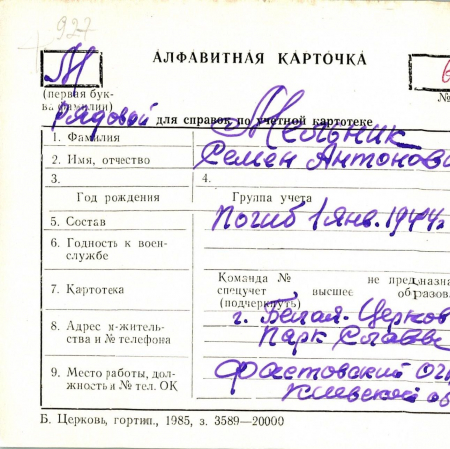 927
АЛФАВИТНАЯ КАРТОЧКА
М
(первая бук-
ва фамилии)
№
рядовой для справок по учетной картотеке
1. Фамилия Мельник
2. Имя, отчество Семен Антонови
3. 4.
Год рождения Группа учета
5. Состав Погиб 1 янв. 1944г
6. Годность к воен-
службе
Команда № не предназна
7. Картотека спецучет высшее образова
(подчеркнуть)
8. Адрес я-житель- г. Белая-Церков
ства и № телефона Парк Славы
9. Место работы, дол- Фастовский
жность и № тел. ОК Киевской об
Б. Церковь, гортип., 1985, з. 3589—20000